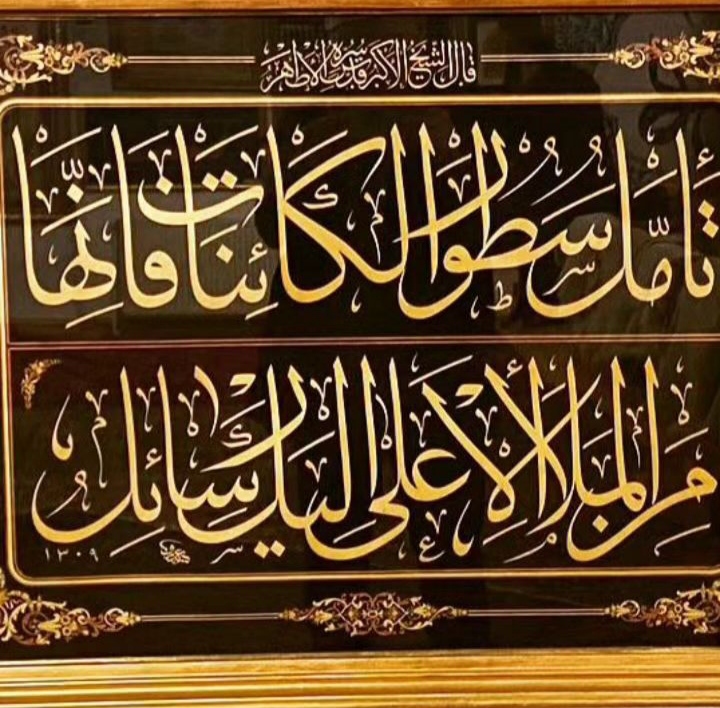 قال الشيخ الأكبر قدس سره الأطهر
تأمل سطور الكائنات فإنها
من الملإ الأعلى إليك رسائل
١٣٠٩